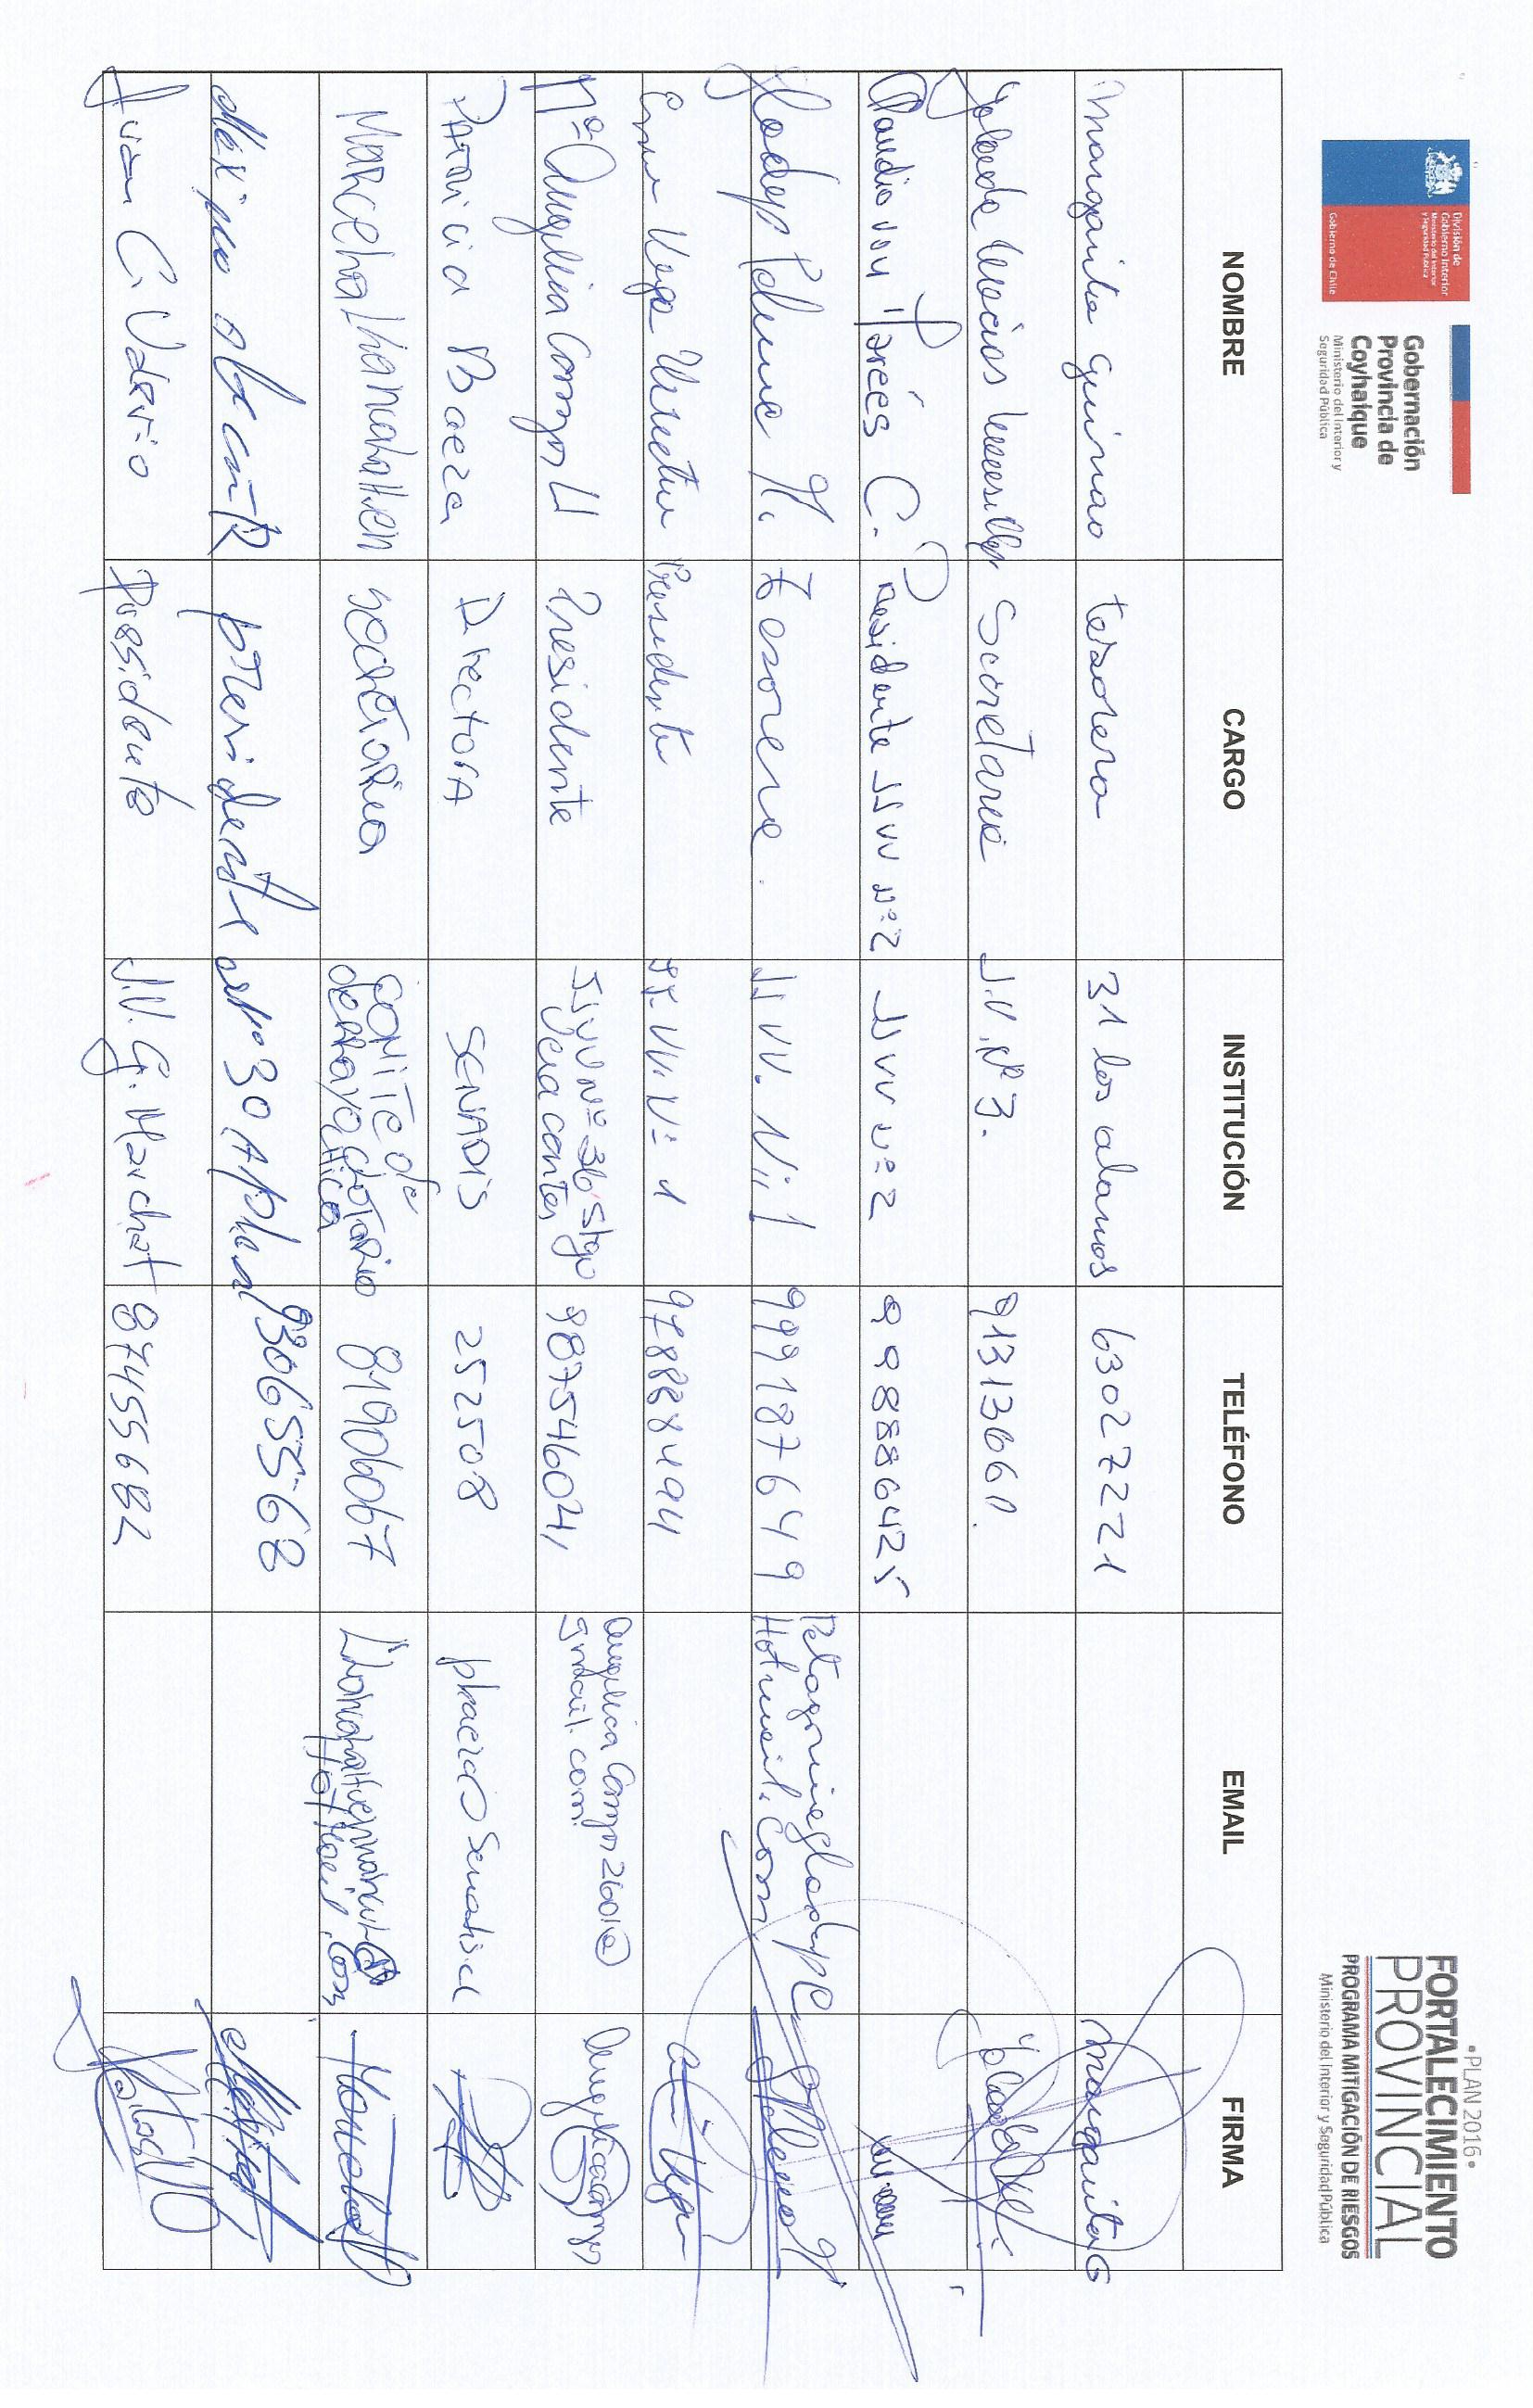 División de
Gobierno Interior
Ministerio del Interior
y Seguridad Pública
Gobierno de Chile
Gobernación
Provincia de
Coyhaique
Ministerio del Interior y
Seguridad Pública
•PLAN 2016•
FORTALECIMIENTO
PROVINCIAL
PROGRAMA MITIGACIÓN DE RIESGOS
Ministerio del Interior y Seguridad Pública
NOMBRE CARGO INSTITUCIÓN TELÉFONO EMAIL FIRMA
Margarita Guinao tesorera 31 los alamos 63027221 Margarita G
Yolanda Macias Mansilla Secretaria J.V. Nº 3. 91313660.
Claudio von Marées C. Presidente JJVV Nº 2 JJVV Nº 2 998886425
Gladys M. Tesorera JJ VV. Nº 1 999187649 Patagoniagladys@
Hotmail.com
Vega Presidente JJ. VV. Nº 1 978888494 Vega
Mª Angelica Campos U Presidente JJVV Nº 36 Stgo
Vera contes 987546041 Angelica Campos 2601@
gmail.com Angelica Campos
Patricia Baeza Directora SENADIS 252508 pbaeza@senadis.cl
Marcela Llancalahuen secretaria COMITE de
chica 81906067
Hotmail.com
Maximo presidente Nº 30 93065568
Juan C. Valerio Presidente J.V. G. Marchat 87455682